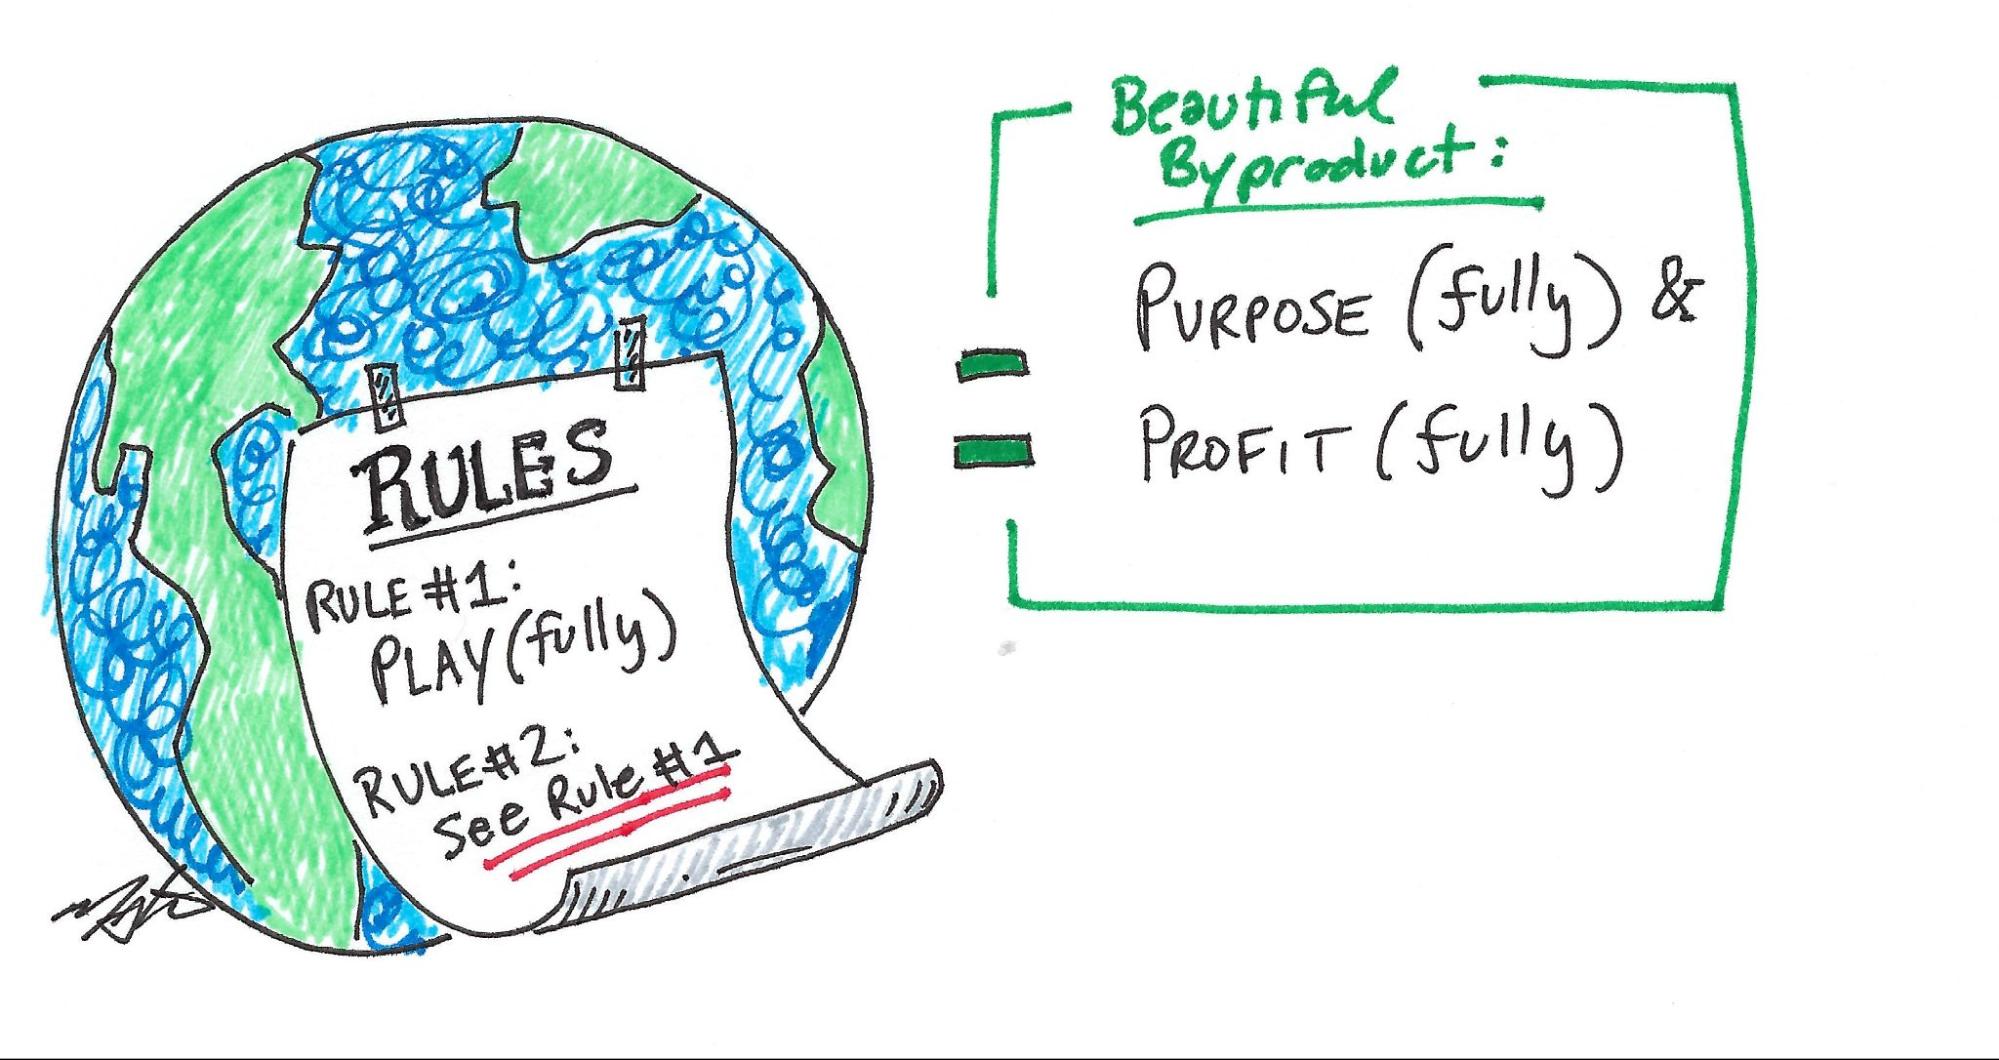 RULES
RULE #1:
PLAY (fully)
RULE #2:
See Rule #1
Beautiful
Byproduct:
PURPOSE (fully) &
PROFIT (fully)